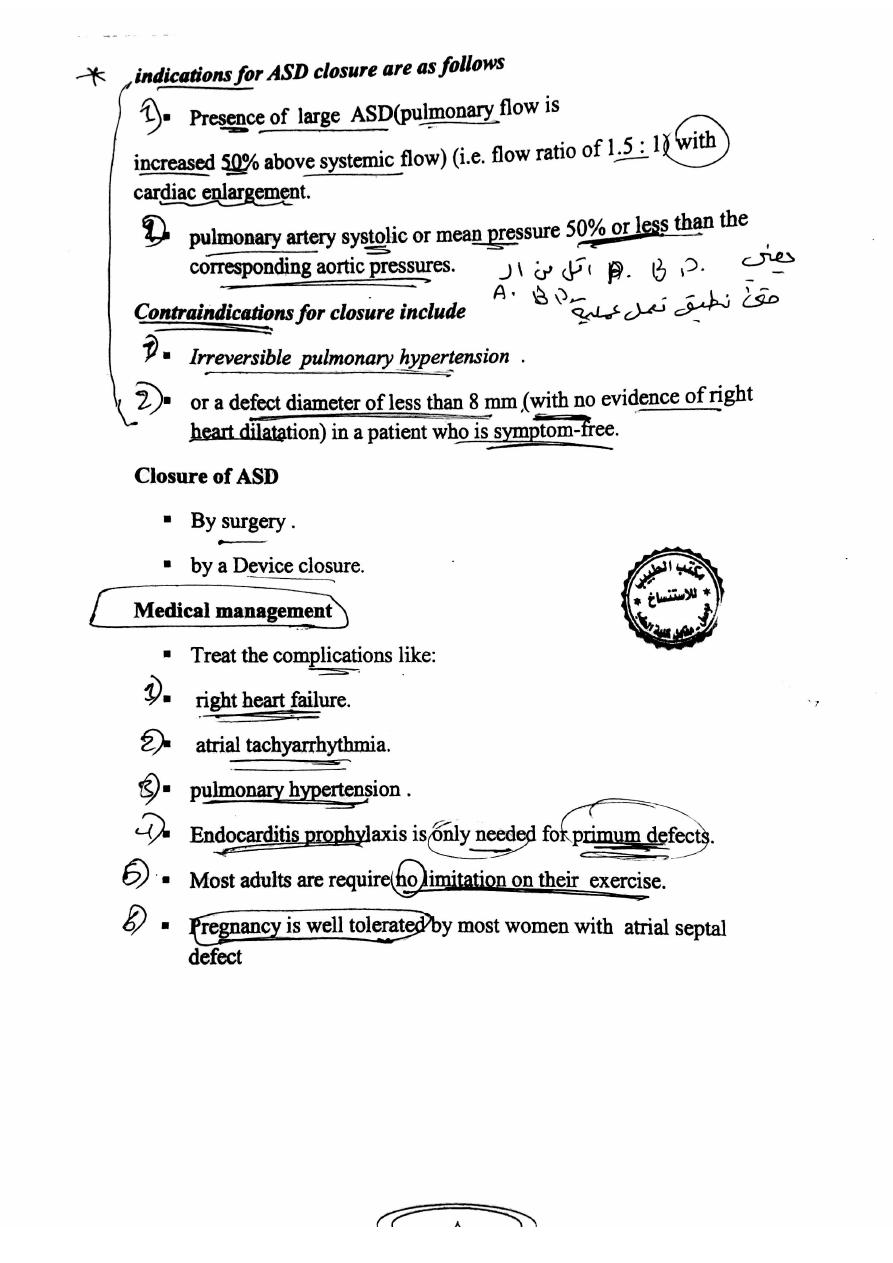 indications for ASD closure are as follows
1) ▪ Presence of large ASD(pulmonary flow is
increased 50% above systemic flow) (i.e. flow ratio of 1.5 : 1) with
cardiac enlargement.
2) ▪ pulmonary artery systolic or mean pressure 50% or less than the
corresponding aortic pressures.
اقل من ال P. B P.
A. B P
Contraindications for closure include
1) ▪ Irreversible pulmonary hypertension .
2) ▪ or a defect diameter of less than 8 mm (with no evidence of right
heart dilatation) in a patient who is symptom-free.
Closure of ASD
▪ By surgery .
▪ by a Device closure.
مكتب الطبيب
للاستنساخ
Medical management
▪ Treat the complications like:
1) ▪ right heart failure.
2) ▪ atrial tachyarrhythmia.
3) ▪ pulmonary hypertension .
4) ▪ Endocarditis prophylaxis is only needed for primum defects.
5) ▪ Most adults are require no limitation on their exercise.
6) ▪ Pregnancy is well tolerated by most women with atrial septal
defect
٨